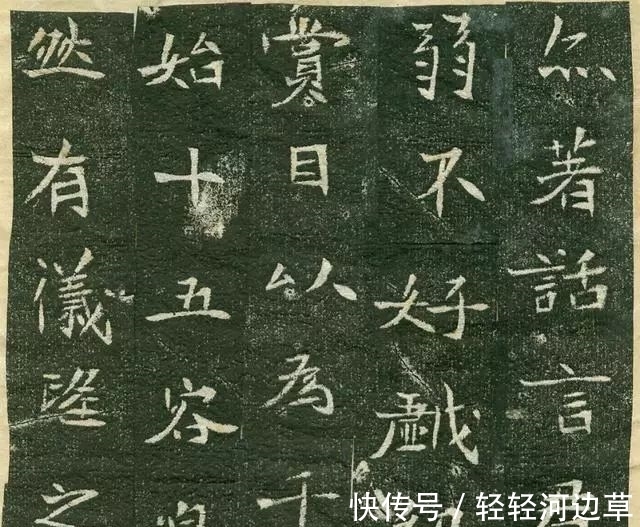 著話言
弱不好戲
賞目以為千
始十五容
然有儀之
快传号 / 轻轻河边草